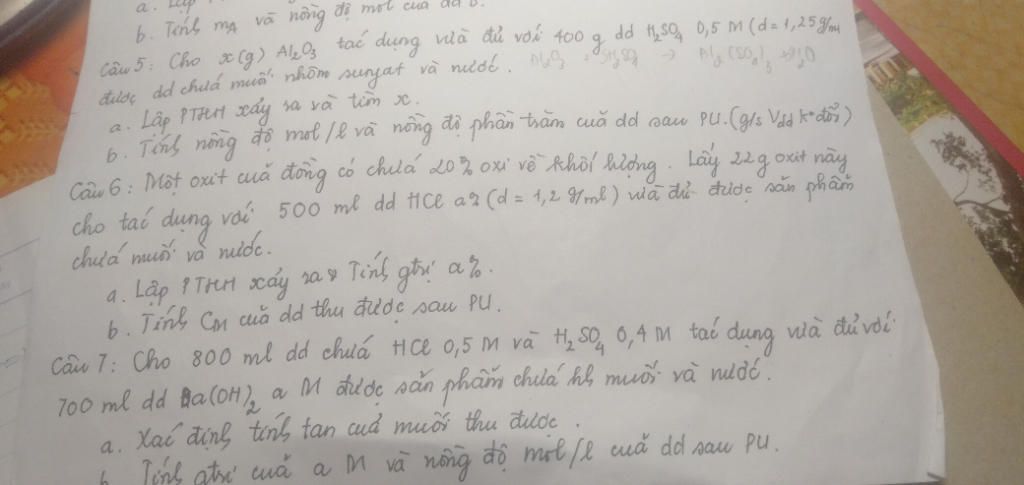 a. Lập
b. Tính mA và nồng độ mol của dd B.
Câu 5: Cho x(g) Al2O3 tác dụng vừa đủ với 400 g dd H2SO4 0,5 M (d = 1,25g/ml
được dd chứa muối nhôm sunfat và nước. Al2O3 + 3H2SO4 → Al2(SO4)3 + 3H2O
a. Lập PTHH xảy ra và tìm x.
b. Tính nồng độ mol/l và nồng độ phần trăm cuả dd sau PU. (g/s Vdd k° đổi)
Câu 6: Một oxit cuả đồng có chứa 20% oxi về khối lượng. Lấy 22 g oxit này
cho tác dụng với 500 ml dd HCl a% (d = 1,2 g/ml) vừa đủ được sản phẩm
chứa muối và nước.
a. Lập PTHH xảy ra & Tính gtrị a%.
b. Tính CM cuả dd thu được sau PU.
Câu 7: Cho 800 ml dd chứa HCl 0,5 M và H2SO4 0,4 M tác dụng vừa đủ với
700 ml dd Ba(OH)2 a M được sản phẩm chứa hh muối và nước.
a. Xác định tính tan cuả muối thu được.
b. Tính gtrị cuả a M và nồng độ mol/l cuả dd sau PU.